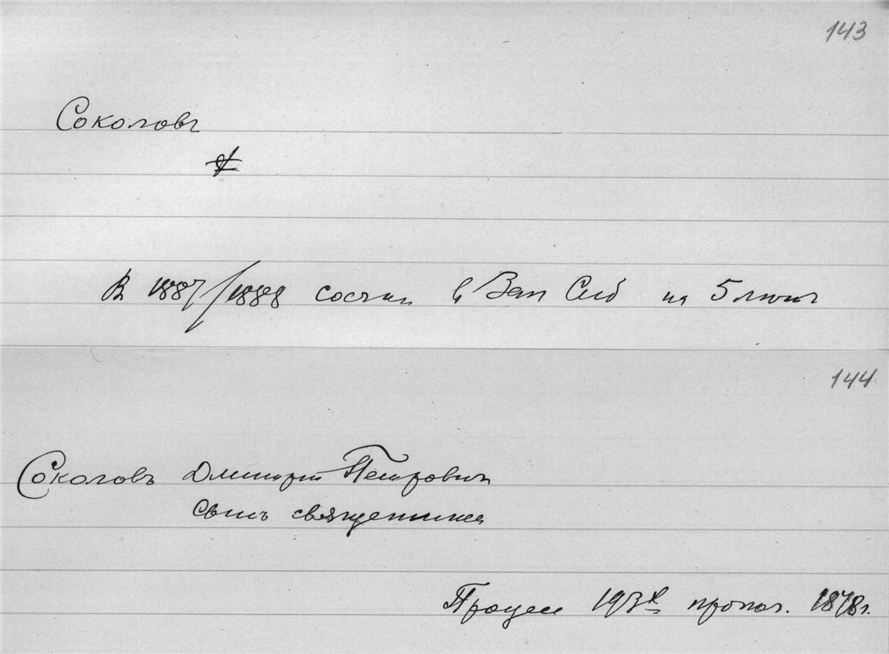 143
Соколовъ
В 1887/1888 сослан в Зап Сиб на 5 лют
144
Соколовъ Дмитрий Петрович
Сынъ священника
Процесс 193х пропаг. 1878г.